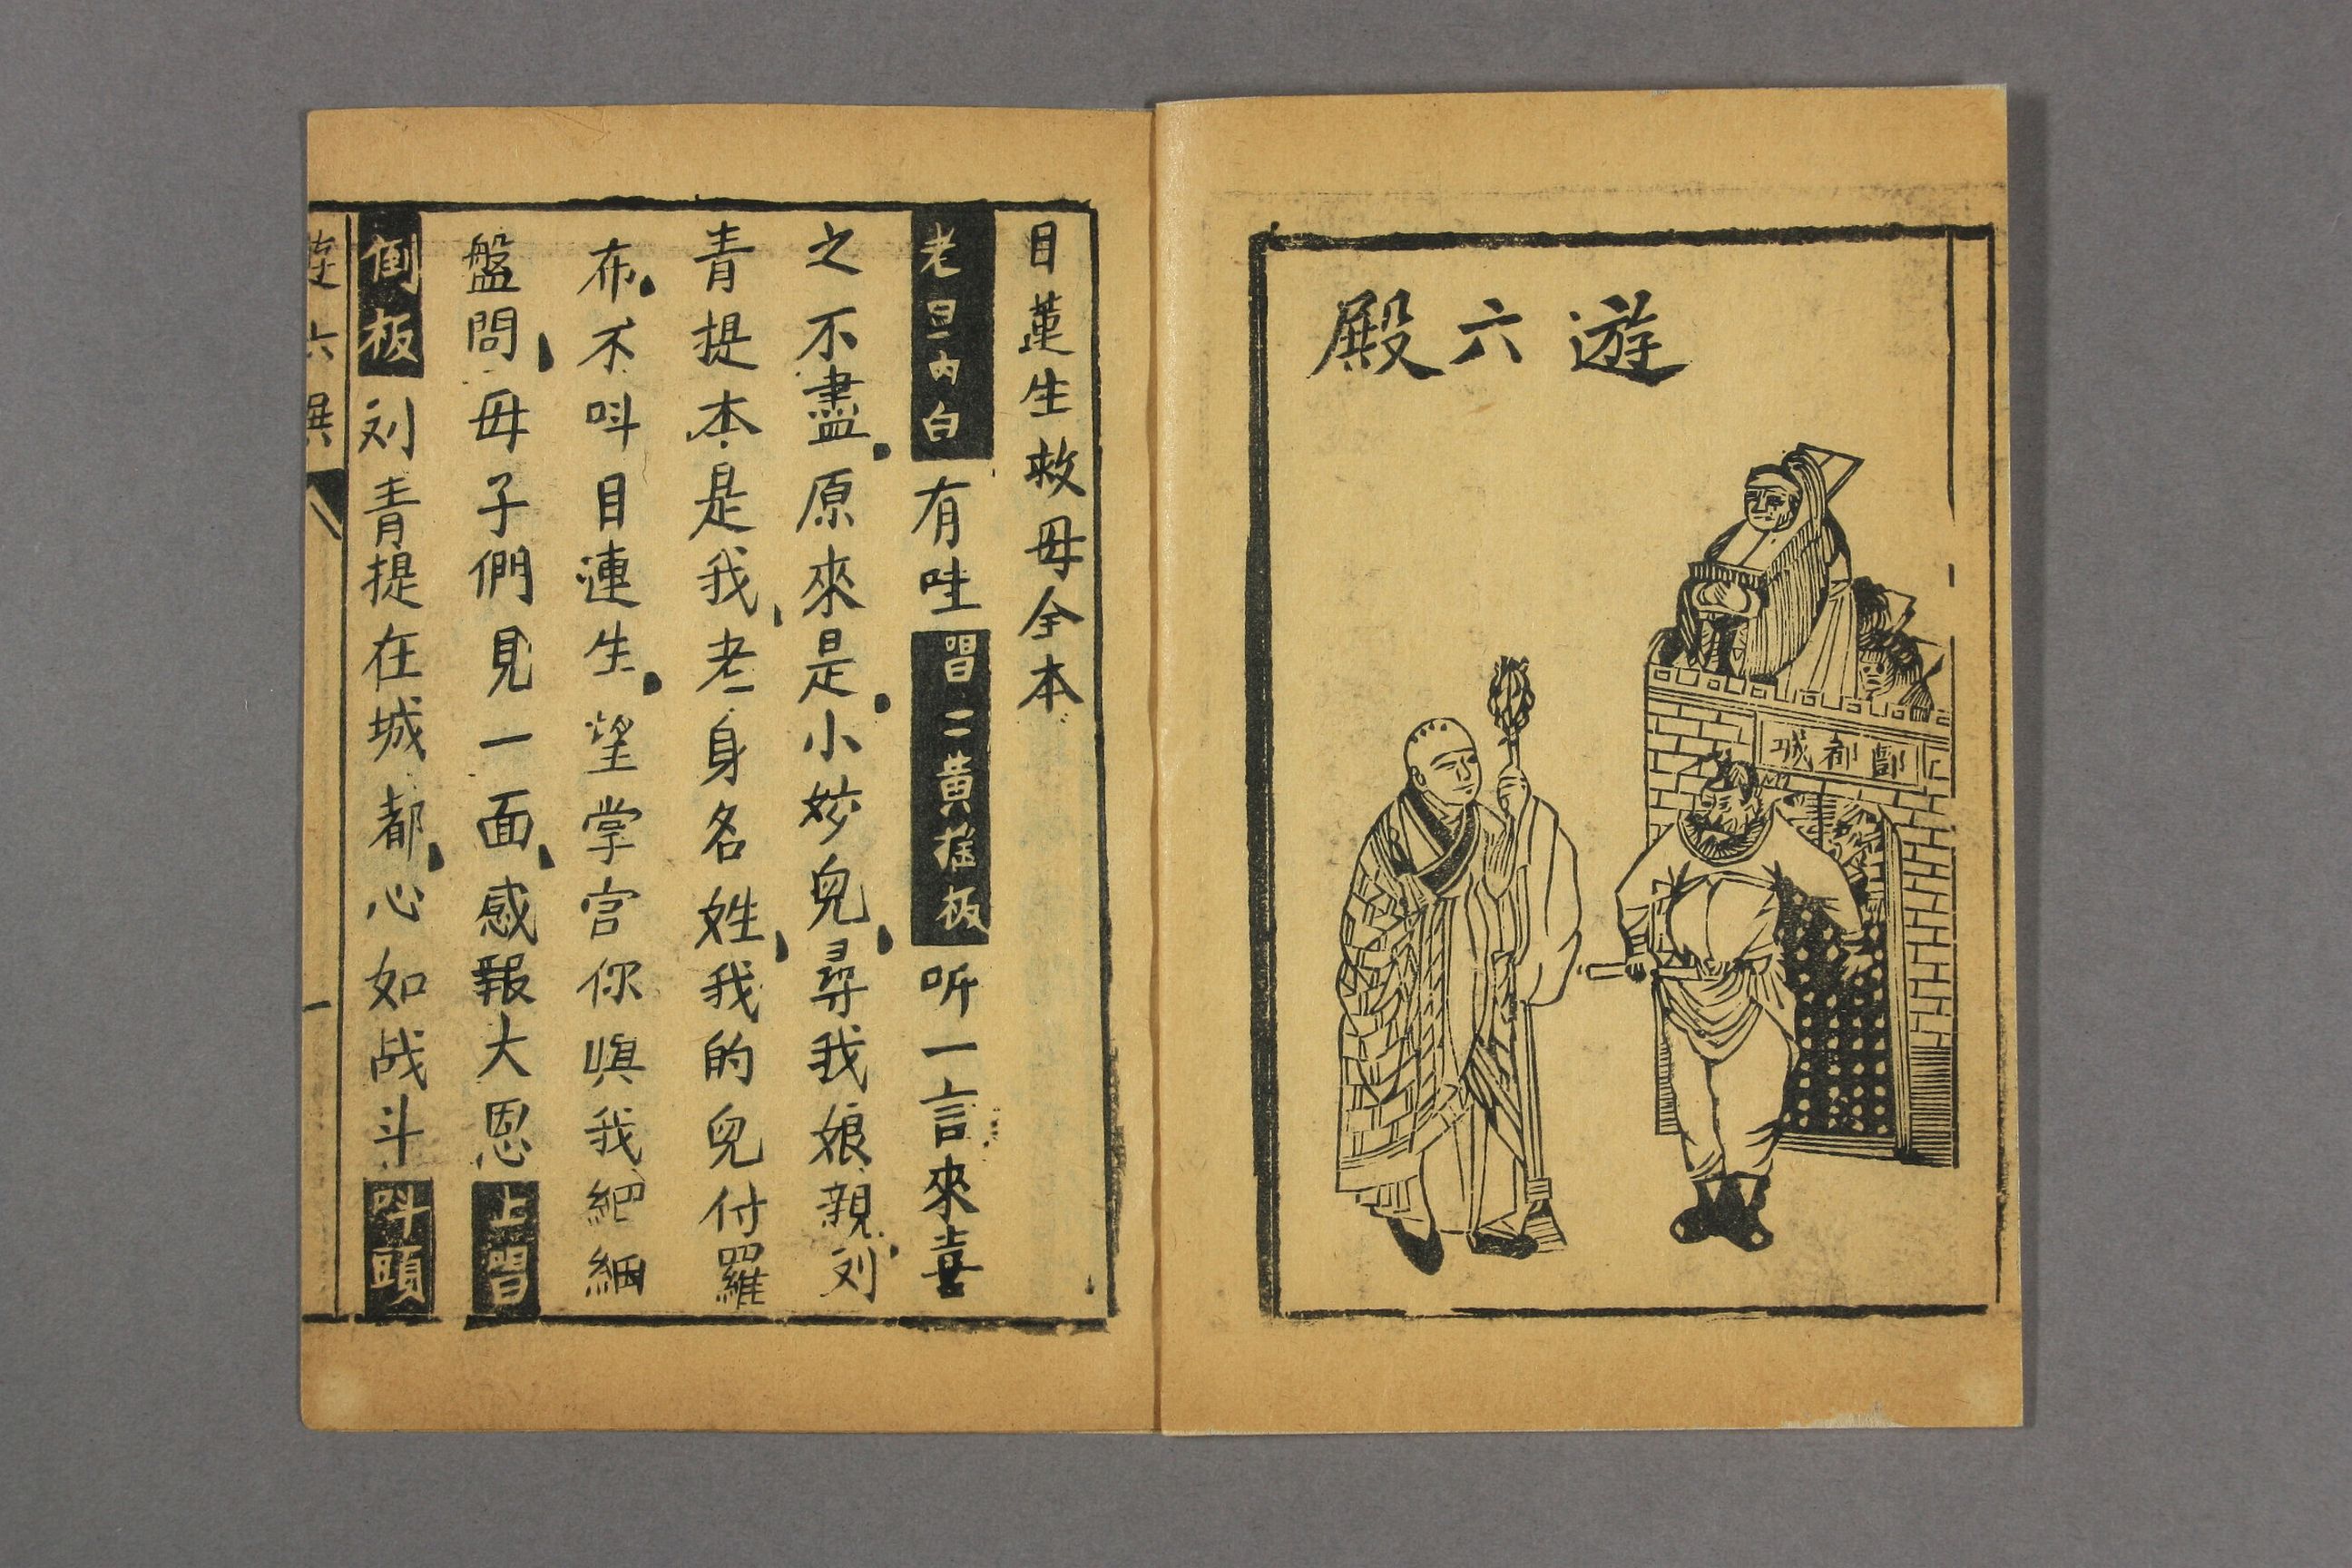 遊六殿
酆都城
目蓮生救母全本
老旦內白 有哇 唱二黃搖板 听一言來喜
之不盡原來是小妙兒尋我娘親刘
青提本是我老身名姓我的兒付羅
布不呌目連生望掌宫你嗔我絕細
盤問母子們見一面感報大恩 上唱
倒板 刘青提在城都心如战斗 呌頭
遊六殿
一